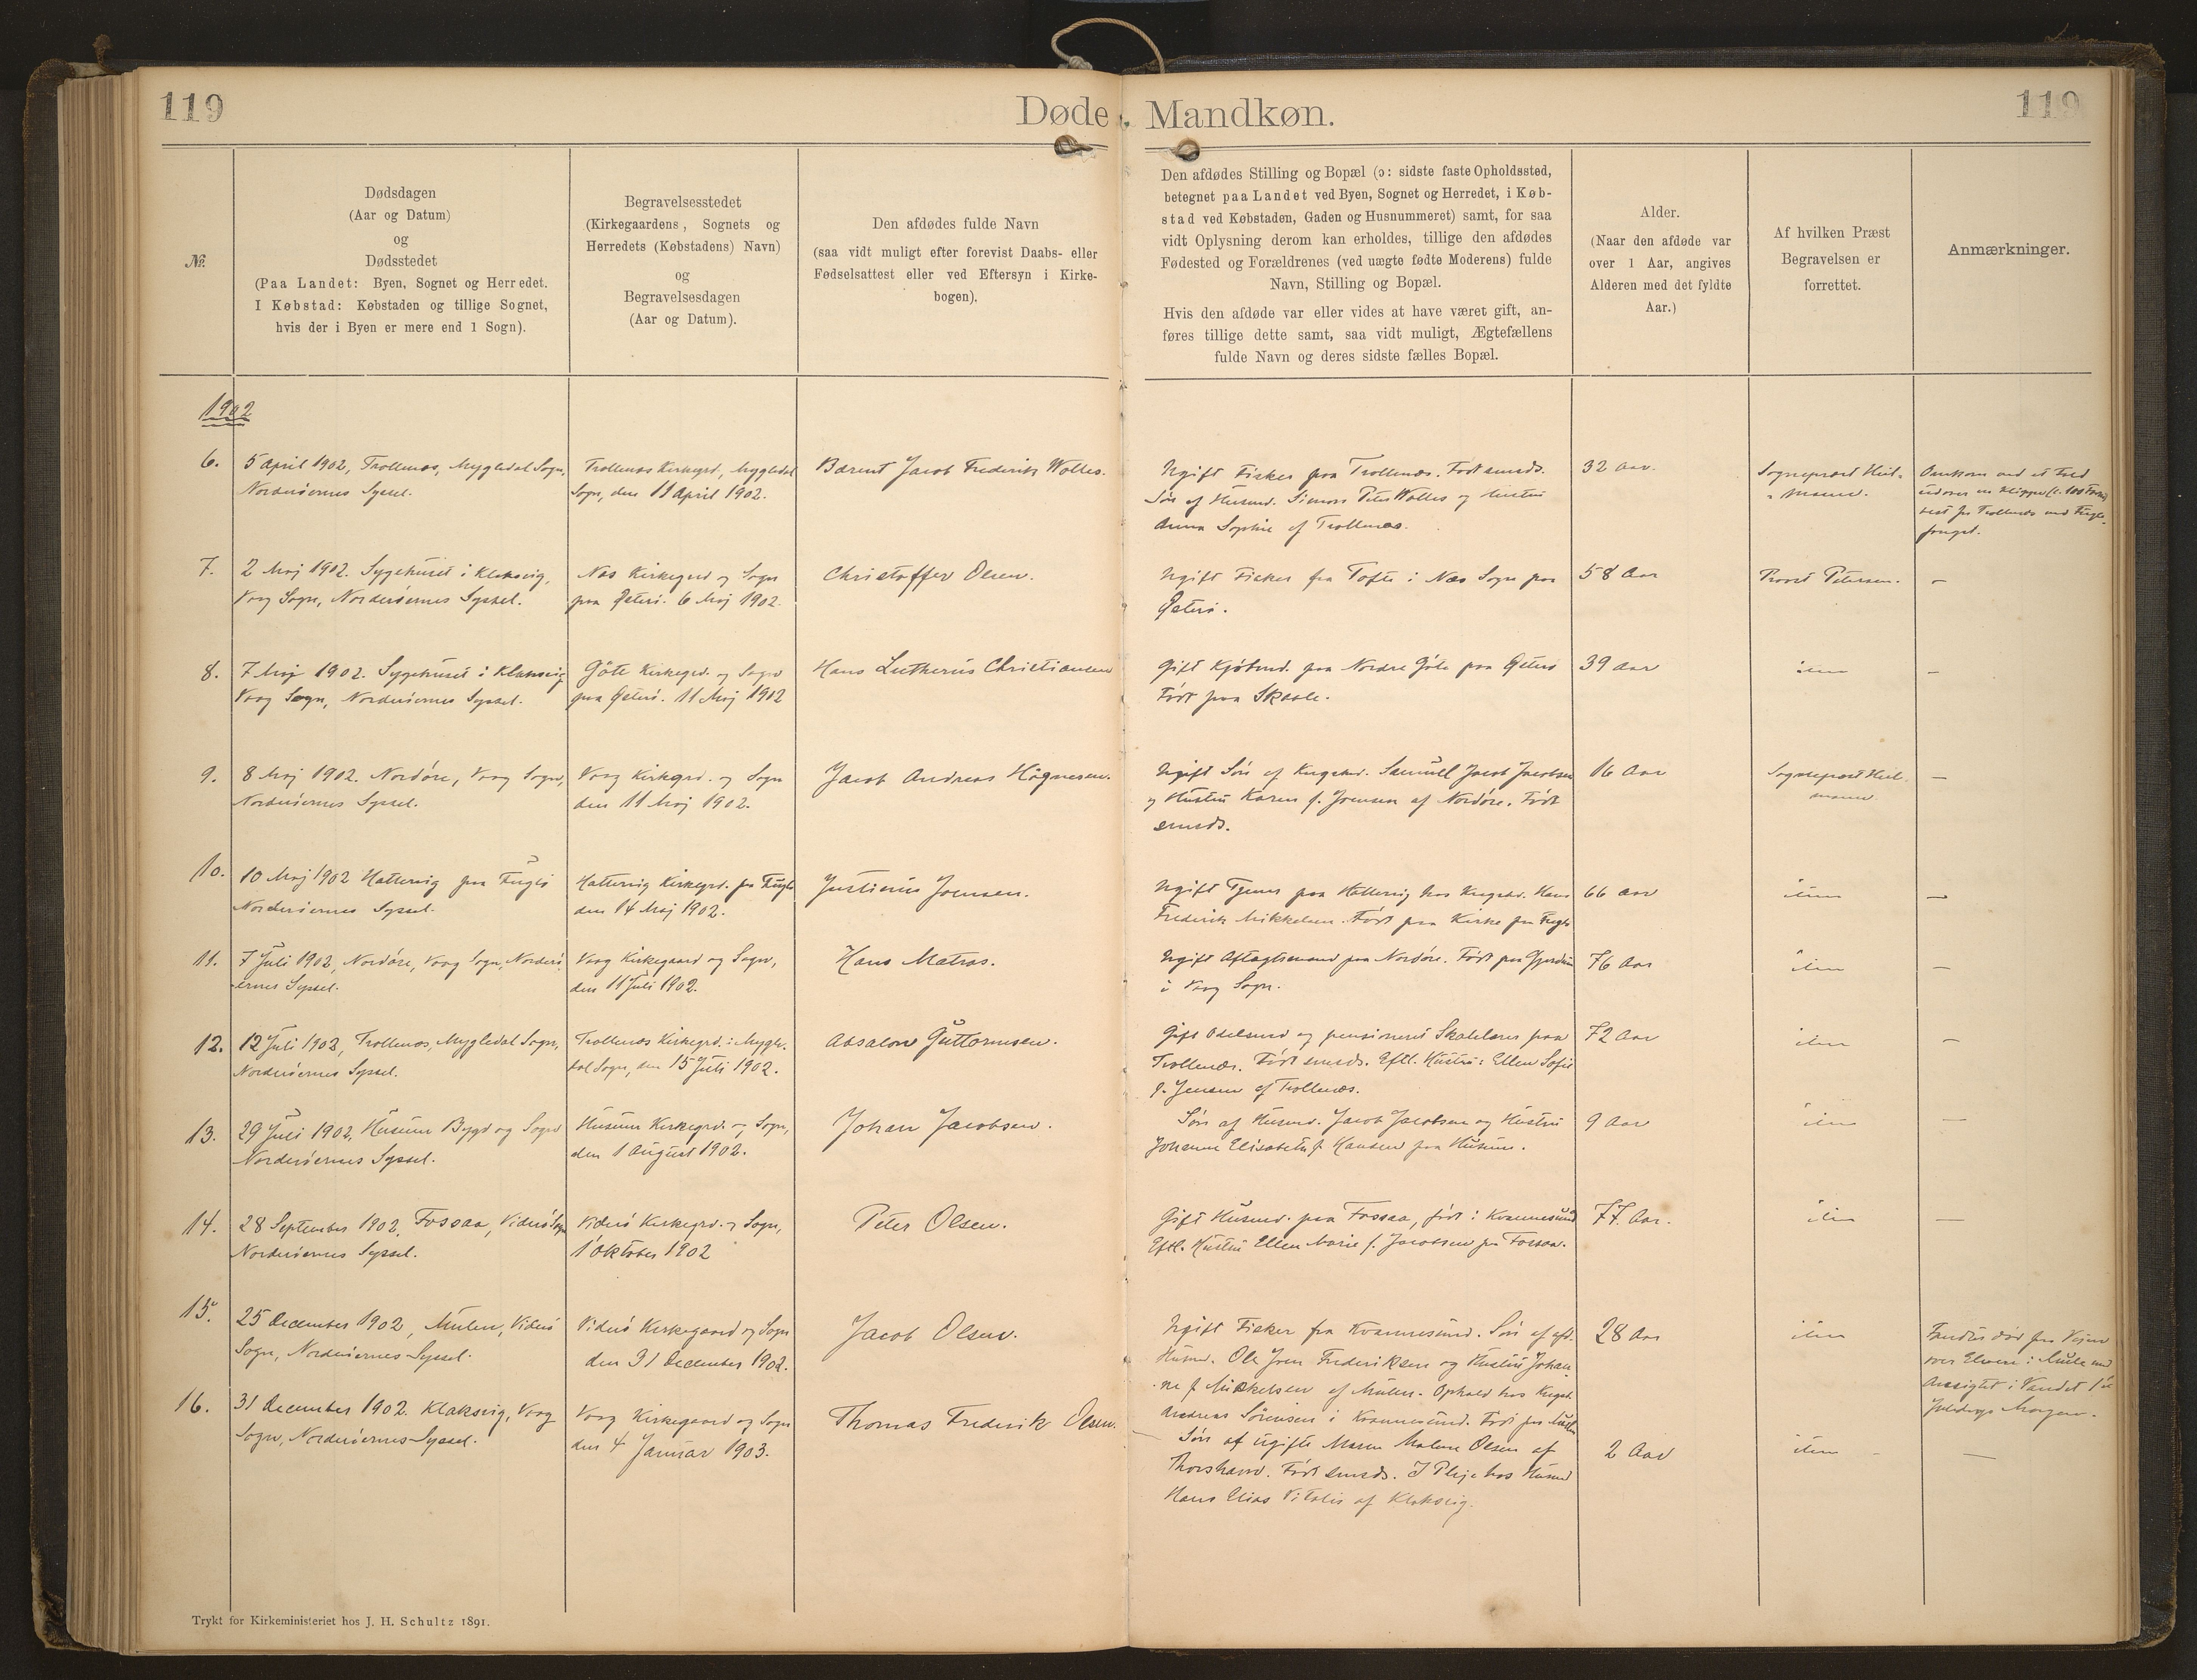 119
Døde, Mandkøn.
119
№.
Dødsdagen
(Aar og Datum)
og
Dødsstedet
(Paa Landet: Byen, Sognet og Herredet.
I Købstad: Købstaden og tillige Sognet,
hvis der i Byen er mere end 1 Sogn).
Begravelsesstedet
(Kirkegaardens, Sognets og
Herredets (Købstadens) Navn)
og
Begravelsesdagen
(Aar og Datum).
Den afdødes fulde Navn
(saa vidt muligt efter forevist Daabs- eller
Fødselsattest eller ved Eftersyn i Kirke-
bogen).
Den afdødes Stilling og Bopæl (ɔ: sidste faste Opholdssted,
betegnet paa Landet ved Byen, Sognet og Herredet, i Køb-
stad ved Købstaden, Gaden og Husnummeret) samt, for saa
vidt Oplysning derom kan erholdes, tillige den afdødes
Fødested og Forældrenes (ved uægte fødte Moderens) fulde
Navn, Stilling og Bopæl.
Hvis den afdøde var eller vides at have været gift, an-
føres tillige dette samt, saa vidt muligt, Ægtefællens
fulde Navn og deres sidste fælles Bopæl.
Alder.
(Naar den afdøde var
over 1 Aar, angives
Alderen med det fyldte
Aar.)
Af hvilken Præst
Begravelsen er
forrettet.
Anmærkninger.
1902
6.
5 April 1902, Trollenæs, Mygledal Sogn,
Norderøernes Syssel.
Trollenæs Kirkegrd, Mygledal
Sogn, den 11 April 1902.
Barent Jacob Frederik Wolles.
Ugift Fisker paa Trollenæs. Født smsds.
Søn af Husmd. Simon Peter Wolles og Hustru
Anna Sophie af Trollenæs.
32 Aar.
Sognepræst Heil-
mann.
Omkom ved et Fald
udover en Klippe (c. 100 Favne)
vest for Trollenæs ved Fugle-
fangst.
7.
2 Maj 1902. Sygehuset i Klaksvig,
Vaag Sogn, Norderøernes Syssel.
Næs Kirkegrd og Sogn
paa Østerø. 6 Maj 1902.
Christoffer Olsen.
Ugift Fisker fra Tofte i Næs Sogn paa
Østerø.
58 Aar
Provst Petersen.
–
8.
7 Maj 1902. Sygehuset i Klaksvig
Vaag Sogn, Norderøernes Syssel.
Göte Kirkegrd. og Sogn
paa Østerø. 11 Maj 1902
Hans Lutherus Christiansen
Gift Kjøbmd. paa Nordre Göte paa Østerø
Født paa Skaale.
39 Aar
idem
–
9.
8 Maj 1902. Nordøre, Vaag Sogn,
Norderøernes Syssel.
Vaag Kirkegrd. og Sogn
den 11 Maj 1902.
Jacob Andreas Högnesen.
Ugift Søn af Kngsbd. Samuel Jacob Jacobsen
og Hustru Karen f. Joensen af Nordøre. Født
smsds.
16 Aar
Sognepræst Heil-
mann.
–
10.
10 Maj 1902 Hattervig paa Fuglø
Norderøernes Syssel.
Hattervig Kirkegrd. paa Fuglø
den 14 Maj 1902.
Justinus Joensen.
Ugift Tjener paa Hattervig hos Kngsbd. Hans
Frederik Mikkelsen. Født paa Kirke paa Fuglø
66 Aar
idem
–
11.
7 Juli 1902, Nordøre, Vaag Sogn, Norderø-
ernes Syssel.
Vaag Kirkegaard og Sogn,
den 11 Juli 1902.
Hans Matras.
Ugift Aftægtsmand paa Nordøre. Født paa
i Vaag Sogn.
76 Aar
idem
–
12.
12 Juli 1902, Trollenæs, Mygledal Sogn,
Norderøernes Syssel.
Trollenæs Kirkegrd. i Mygle-
dal Sogn, den 15 Juli 1902.
Absalon Guttormsen.
Gift Odelsmd og pensioneret Skolelærer paa
Trollenæs. Født smsds. Eftl. Hustru: Ellen Sofie
f. Jensen af Trollenæs.
72 Aar
idem
–
13.
29 Juli 1902, Husum Bygd og Sogn
Norderøernes Syssel.
Husum Kirkegrd. og Sogn,
den 1 August 1902.
Johan Jacobsen.
Søn af Husmd. Jacob Jacobsen og Hustru
Johanne Elisabeth f. Hansen paa Husum.
9 Aar
idem
–
14.
28 September 1902, Fossaa, Viderø Sogn
Norderøernes Syssel.
Viderø Kirkegrd. og Sogn,
1 Oktober 1902
Peter Olsen.
Gift Husmd. paa Fossaa, født i Kvannesund
Eftl. Hustru Ellen Marie f. Jacobsen paa Fossaa.
77 Aar.
idem
–
15.
25 December 1902, Mulen, Viderø
Sogn, Norderøernes Syssel.
Viderø Kirkegaard og Sogn
den 31 December 1902.
Jacob Olsen.
Ugift Fisker fra Kvannesund. Søn af afd.
Husmd. Ole Joen Frederiksen og Hustru Johan-
ne f. Mikkelsen af Mulen. Ophold hos Kngsb.
Andreas Sörensen i Kvannesund. Født paa Mulen
28 Aar
idem
Fandtes død paa Vejen
over Elven i Mule med
Ansigtet i Vandet 1ste
Juledags Morgen.
16.
31 December 1902. Klaksvig, Vaag
Sogn, Norderøernes Syssel.
Vaag Kirkegaard og Sogn
den 4 Januar 1903.
Thomas Frederik Olsen.
Søn af ugifte Maren Malene Olsen af
Thorshavn. Født smsds. I Pleje hos Husmd
Hans Elias Vitalis af Klaksvig.
2 Aar
idem
–
Trykt for Kirkeministeriet hos J. H. Schultz 1891.